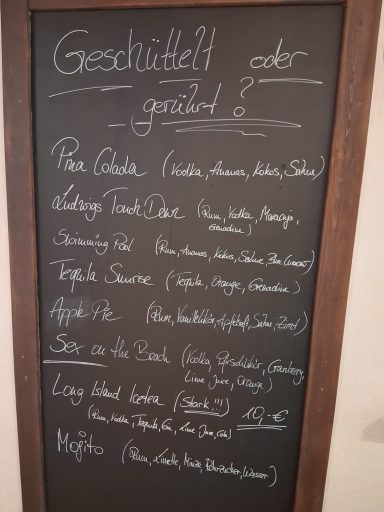 Geschüttelt oder
gerührt?
Pina Colada (Vodka, Ananas, Kokos, Sahne)
Ludwigs Touch Down (Rum, Vodka, Maracuja,
Grenadine)
Swimming Pool (Rum, Ananas, Kokos, Sahne, Blue Curacao)
Tequila Sunrise (Tequila, Orange, Grenadine)
Apple Pie (Rum, Vanillelikör, Apfelsaft, Sahne, Zimt)
Sex on the Beach (Vodka, Pfirsichlikör, Cranberry,
Lime Juice, Orange)
Long Island Icetea (Stark!!!) 10,-€
(Rum, Vodka, Tequila, Gin, Lime Juice, Cola)
Mojito (Rum, Limette, Minze, Rohrzucker, Wasser)